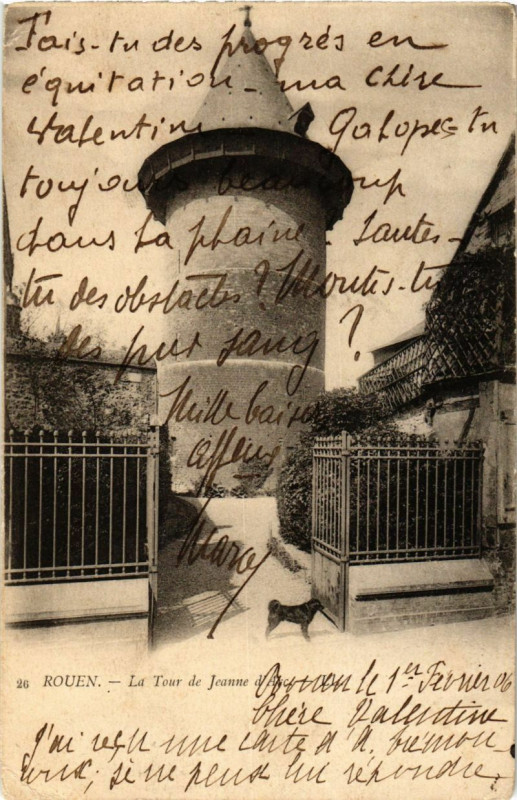 Fais-tu des progrés en
équitation - ma chère
Valentine Galopes-tu
toujours beaucoup
dans la plaine - Sautes-
tu des obstacles ? Montes-tu
des pur sang ?
Mille baisers
affeux
Marcel
26 ROUEN. — La Tour de Jeanne d'Arc
Rouen le 1er Février 06
Chère Valentine
J'ai reçu une carte d'A.
je ne peux lui répondre.